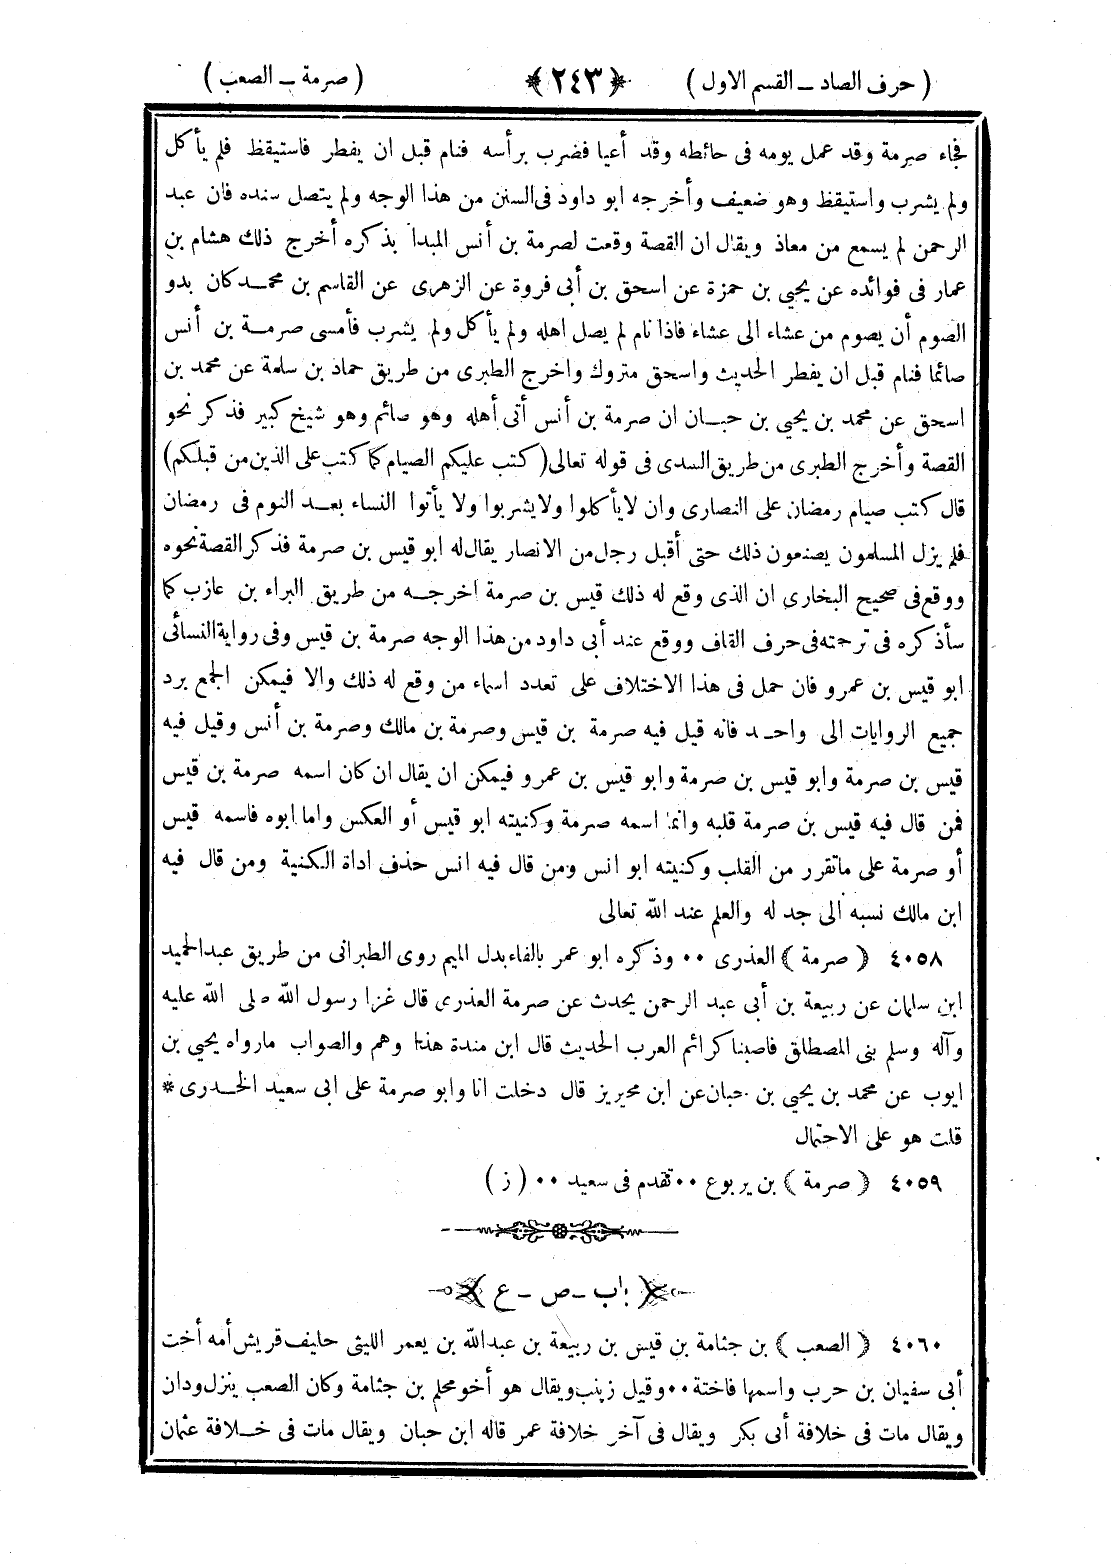 ( حرف الصاد ــ القسم الاول ) ﴿ ٢٤٣ ﴾ ( صرمة ــ الصعب )
فجاء صرمة وقد عمل يومه فى حائطه وقد أعيا فضرب برأسه فنام قبل ان يفطر فاستيقظ فلم يأكل
ولم يشرب واستيقظ وهو ضعيف وأخرجه ابو داود فى السنن من هذا الوجه ولم يتصل سنده فان عبد
الرحمن لم يسمع من معاذ ويقال ان القصة وقعت لصرمة بن أنس المبدأ بذكره أخرج ذلك هشام بن
عمار فى فوائده عن يحيى بن حمزة عن اسحق بن أبى فروة عن الزهرى عن القاسم بن محمد كان بدو
الصوم أن يصوم من عشاء الى عشاء فاذا نام لم يصل اهله ولم يأكل ولم يشرب فأمسى صرمة بن أنس
صائما فنام قبل ان يفطر الحديث واسحق متروك واخرج الطبرى من طريق حماد بن سلمة عن محمد بن
اسحق عن محمد بن يحيى بن حبان ان صرمة بن أنس أتى أهله وهو صائم وهو شيخ كبير فذكر نحو
القصة وأخرج الطبرى من طريق السدى فى قوله تعالى ( كتب عليكم الصيام كما كتب على الذين من قبلكم )
قال كتب صيام رمضان على النصارى وان لا يأكلوا ولا يشربوا ولا يأتوا النساء بعد النوم فى رمضان
فلم يزل المسلمون يصنعون ذلك حتى أقبل رجل من الانصار يقال له ابو قيس بن صرمة فذكر القصة نحوه
ووقع فى صحيح البخارى ان الذى وقع له ذلك قيس بن صرمة اخرجه من طريق البراء بن عازب كما
سأذكره فى ترجمته فى حرف القاف ووقع عند أبى داود من هذا الوجه صرمة بن قيس وفى رواية النسائى
ابو قيس بن عمرو فان حمل فى هذا الاختلاف على تعدد اسماء من وقع له ذلك والا فيمكن الجمع برد
جميع الروايات الى واحد فانه قيل فيه صرمة بن قيس وصرمة بن مالك وصرمة بن أنس وقيل فيه
قيس بن صرمة وابو قيس بن صرمة وابو قيس بن عمرو فيمكن ان يقال ان كان اسمه صرمة بن قيس
فمن قال فيه قيس بن صرمة قلبه وانما اسمه صرمة وكنيته ابو قيس أو العكس واما ابوه فاسمه قيس
أو صرمة على ما تقرر من القلب وكنيته ابو انس ومن قال فيه انس حذف اداة الكنية ومن قال فيه
ابن مالك نسبه الى جد له والعلم عند الله تعالى
٤٠٥٨ ﴿ صرمة ﴾ العذرى ٠٠ وذكره ابو عمر بالفاء بدل الميم روى الطبرانى من طريق عبد الحميد
ابن سليمان عن ربيعة بن أبى عبد الرحمن يحدث عن صرمة العذرى قال غزا رسول الله صلى الله عليه
وآله وسلم بنى المصطلق فاصبنا كرائم العرب الحديث قال ابن مندة هذا وهم والصواب ما رواه يحيى بن
ايوب عن محمد بن يحيى بن حبان عن ابن محيريز قال دخلت انا وابو صرمة على ابى سعيد الخدرى *
قلت هو على الاحتمال
٤٠٥٩ ﴿ صرمة ﴾ بن يربوع ٠٠ تقدم فى سعيد ٠٠ ( ز )
﴿ باب - ص - ع ﴾
٤٠٦٠ ﴿ الصعب ﴾ بن جثامة بن قيس بن ربيعة بن عبد الله بن يعمر الليثى حليف قريش أمه أخت
أبى سفيان بن حرب واسمها فاختة ٠٠ وقيل زينب ويقال هو أخو محلم بن جثامة وكان الصعب ينزل ودان
ويقال مات فى خلافة أبى بكر ويقال فى آخر خلافة عمر قاله ابن حبان ويقال مات فى خلافة عثمان